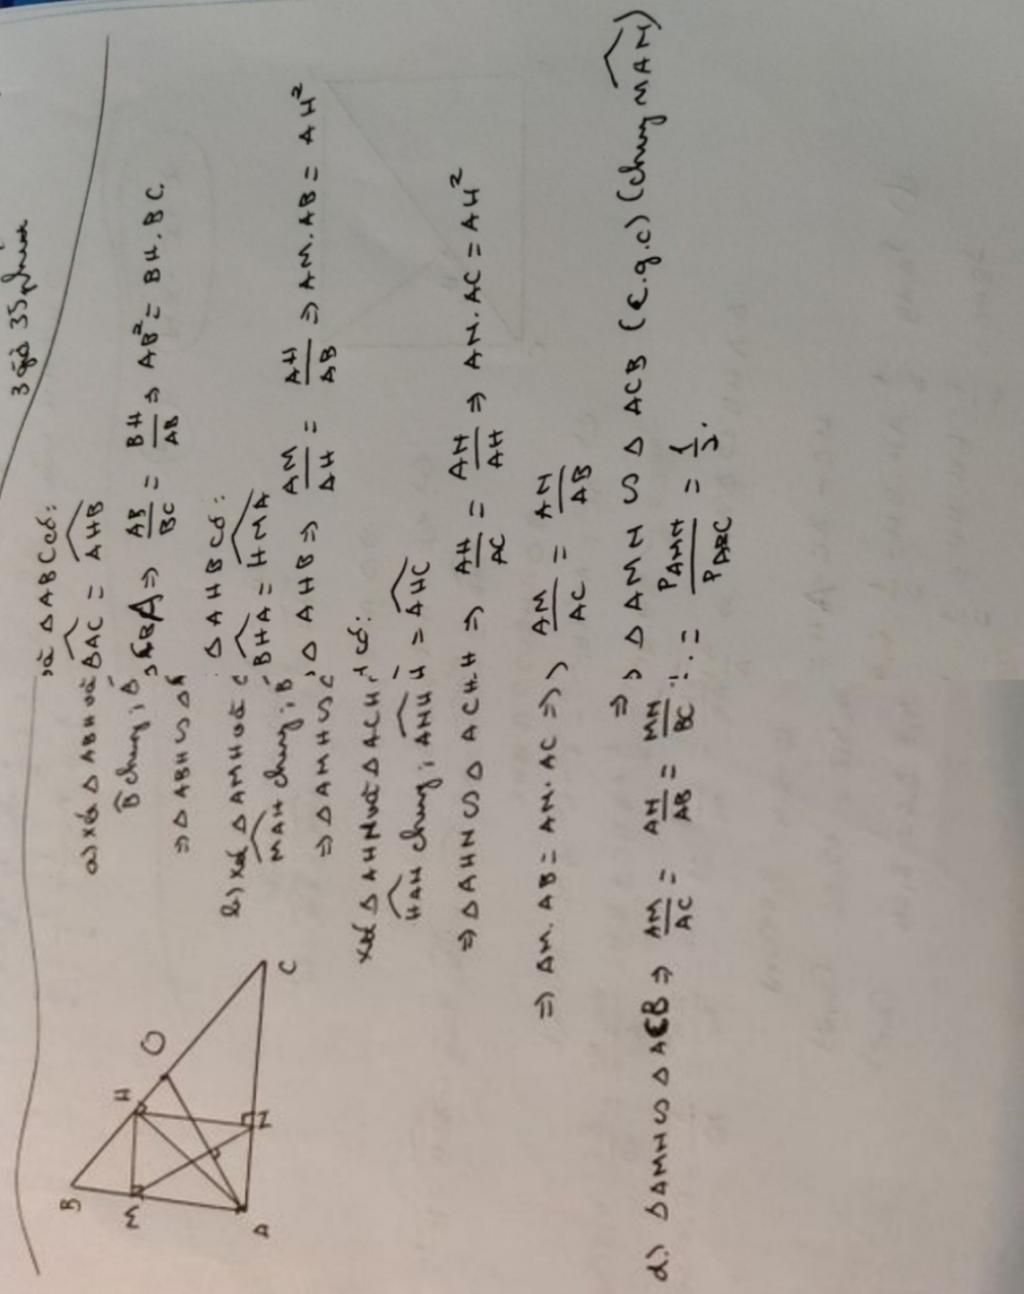 3 giờ 35 phút
a) xét Δ ABH và Δ ABC có:
B̂ chung; BAC = AHB
⇒ Δ ABH ∽ Δ CBA ⇒ AB/BC = BH/AB ⇒ AB² = BH.BC.
b) xét Δ AMH và Δ AHB có:
MAH chung; BHA = HMA
⇒ Δ AMH ∽ Δ AHB ⇒ AM/AH = AH/AB ⇒ AM.AB = AH²
xét Δ AHN và Δ ACH có:
HAN chung; ANH = AHC
⇒ Δ AHN ∽ Δ ACH ⇒ AH/AC = AN/AH ⇒ AN.AC = AH²
⇒ AM.AB = AN.AC ⇒ AM/AC = AN/AB
⇒ Δ AMN ∽ Δ ACB (c.g.c) (chung MAN)
d) Δ AMN ∽ Δ ACB ⇒ AM/AC = AN/AB = MN/BC = P AMN / P ABC
B
M
H
O
A
N
C